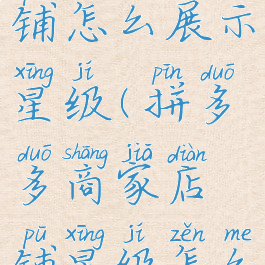 铺怎么展示
xīng jí pīn duō
星级(拼多
duō shāng jiā diàn
多商家店
pū xīng jí zěn me
铺星级怎么